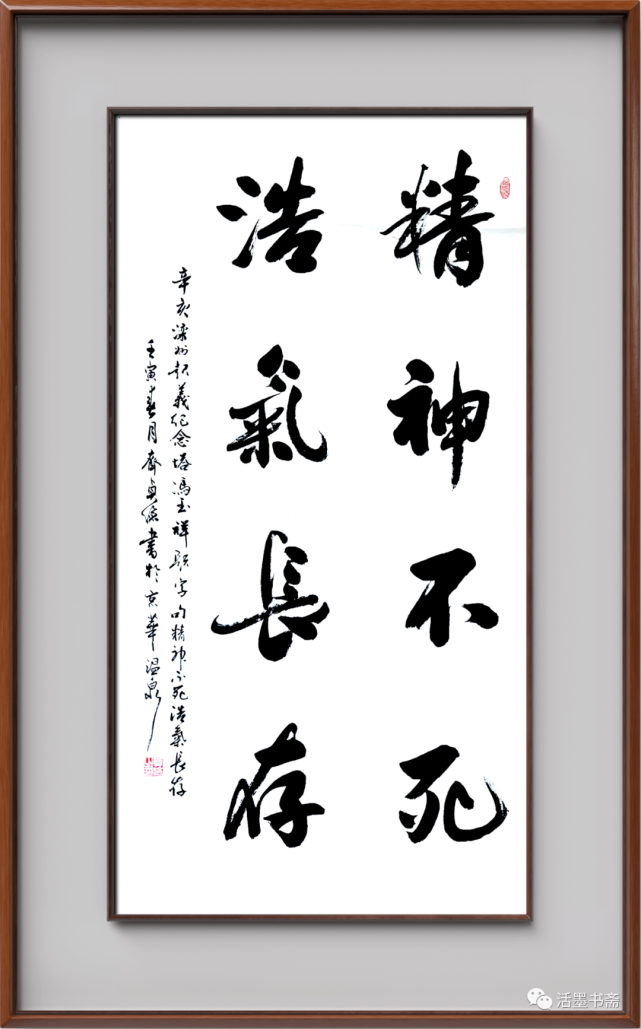 精神不死
浩氣長存
辛亥灤州起義紀念塔馮玉祥題字句精神不死浩氣長存
壬寅春月齊貞傑書於京華温泉
活墨书斋